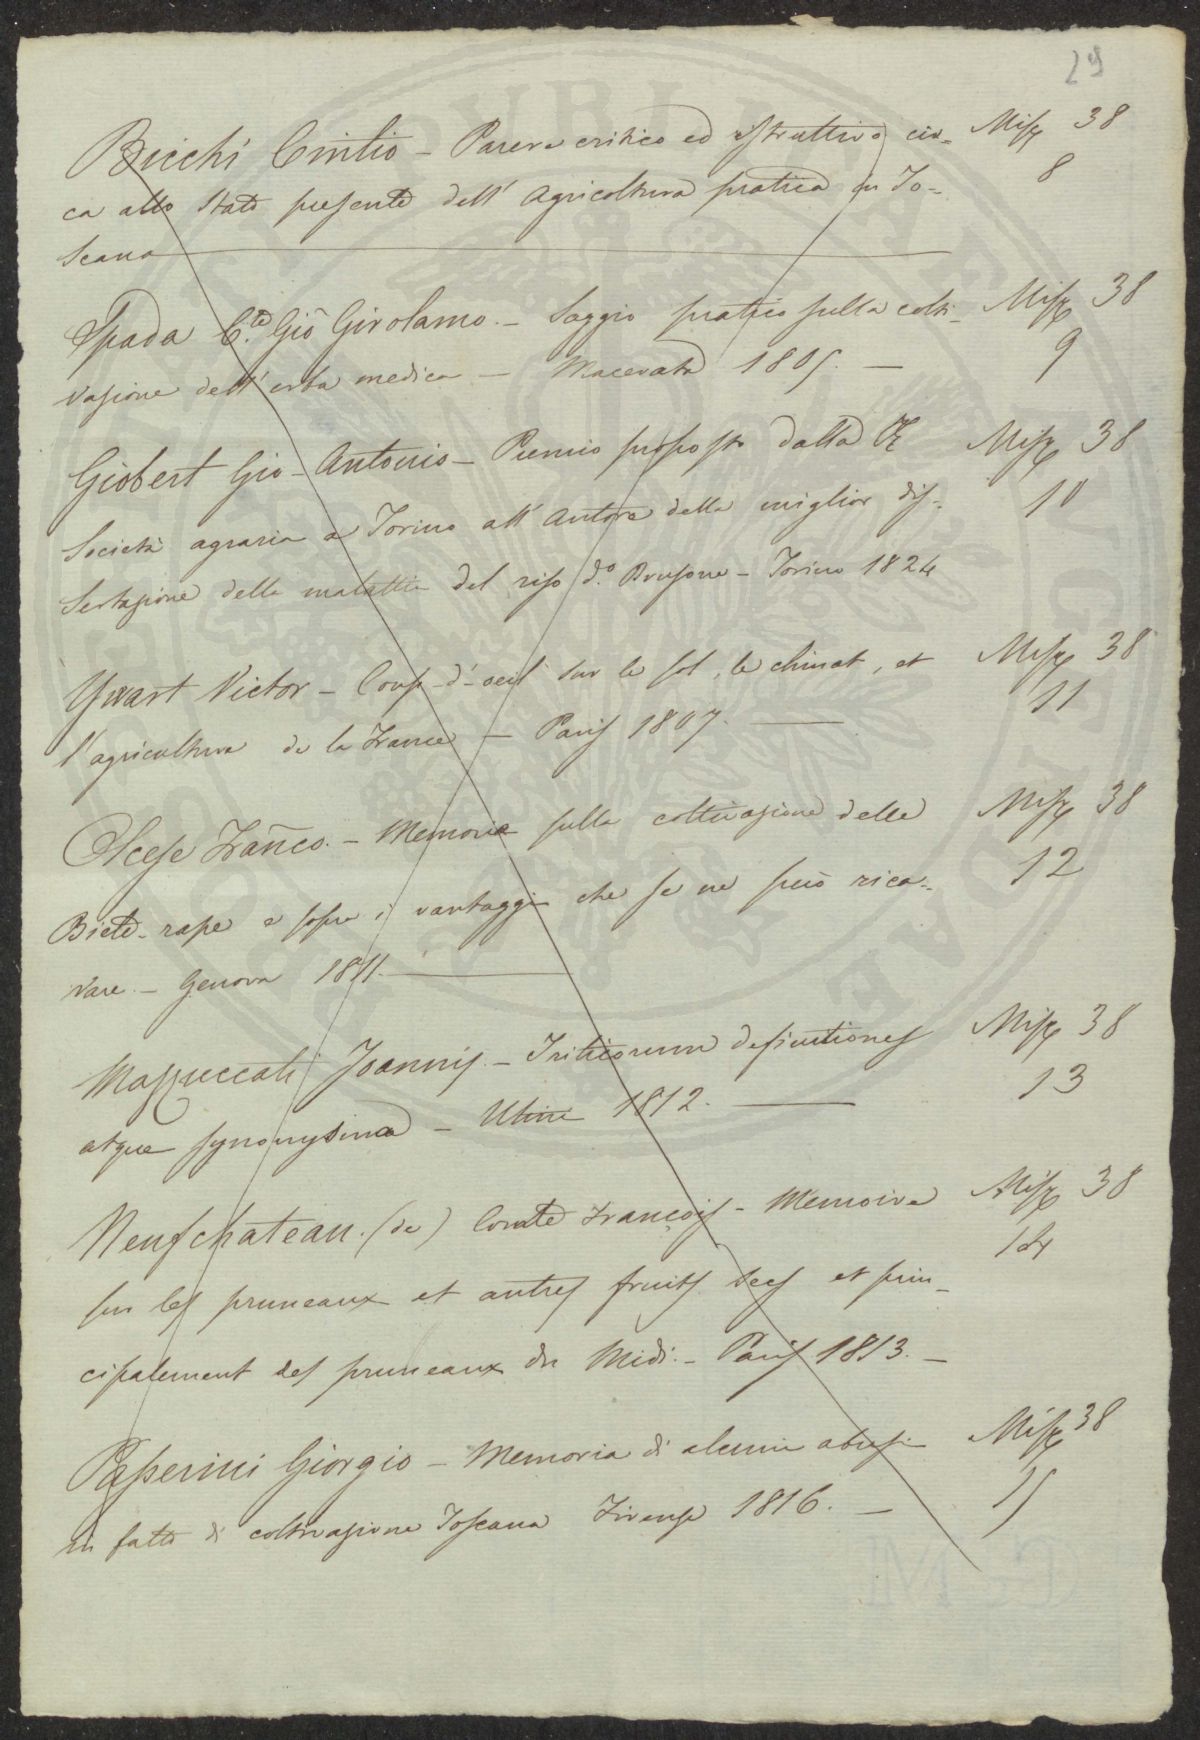 29
Bicchi Cintio – Parere critico ed istruttivo cir- Misc. 38
ca allo Stato presente dell' Agricoltura pratica in To- 8
scana
Spada C.te Gio Girolamo. – Saggio pratico sulla colti- Misc. 38
vazione dell'erba medica – Macerata 1805. – 9
Giobert Gio-Antonio – Premio proposto dalla R. Misc. 38
Società agraria a Torino all'Autore della miglior dis- 10
sertazione della malattia del riso d.o Brusone – Torino 1824
Yvart Victor – Coup-d'-oeil sur le sol, le climat, et Misc. 38
l'agriculture de la France – Paris 1807. 11
Olcese Franco. – Memoria sulla coltivazione delle Misc. 38
Biete-rape e sopra i vantaggi che se ne può rica- 12
vare. – Genova 1811.
Mazzuccati Joannis. – Triticorum definitiones Misc. 38
atque synonymia – Utini 1812. 13
Neufchateau. (de) Comte François – Memoire Misc. 38
sur les pruneaux et autres fruits secs et prin- 14
cipalement des pruneaux du Midi. – Paris 1813. –
Passerini Giorgio – Memoria di alcuni abusi Misc. 38
in fatto di coltivazione Toscana Firenze 1816. – 15